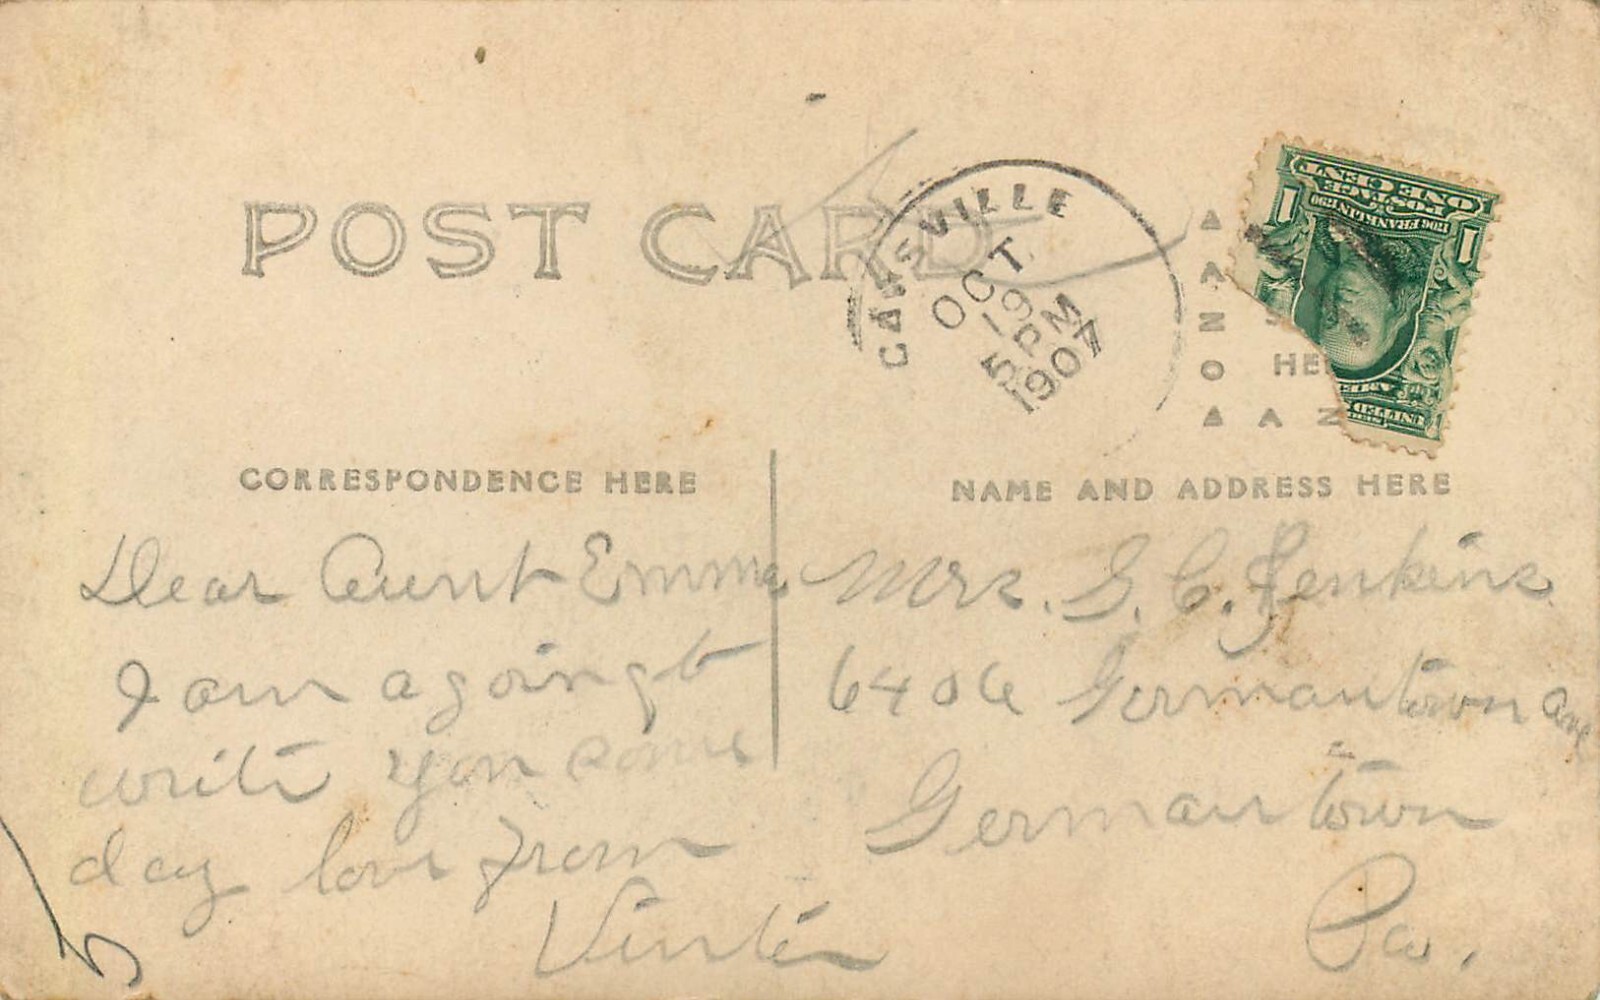 POST CARD
CANSVILLE
OCT
19
5 PM
1907
1
ONE CENT
POSTAGE
1706 FRANKLIN 1790
1
HE
CORRESPONDENCE HERE
NAME AND ADDRESS HERE
Dear Aunt Emma
I am a going to
write you some
day love from
Mrs. G. C. Jenkins
6406 Germantown Ave
Germantown
Pa.
5